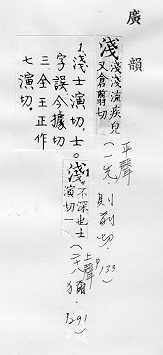 廣韻
淺 淺淺流疾皃
又倉剪切
平聲
(一先,則前切,p133)
淺 不深也士
演切一
上聲
(二十八獮,p291)
1.淺士演切。士
字誤今據切
三全王正作
七演切。